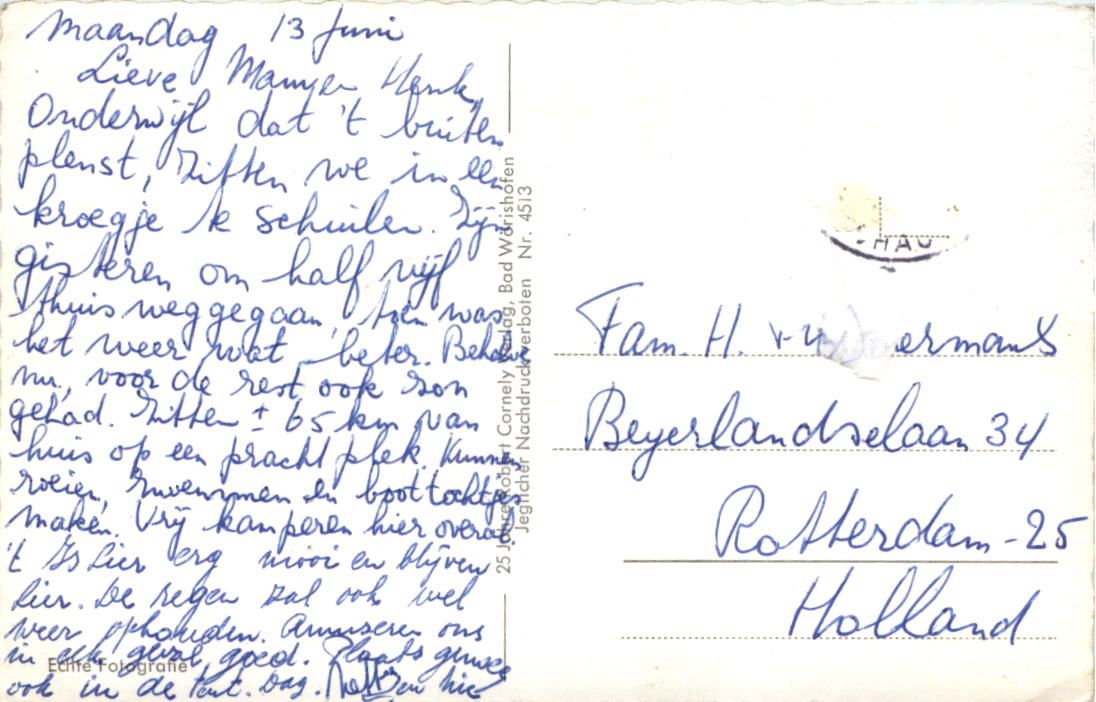 Maandag 13 Juni
Lieve Mamy en Henk,
Onderwijl dat 't buiten
plenst, zitten we in een
kroegje te schuilen. Zijn
gisteren om half vijf
thuis weggegaan, toen was
het weer wat beter. Behalve
nu, voor de rest ook zon
gehad. Zitten ± 65 km van
huis op een pracht plek. Kunnen
roeien, zwemmen en boottochtjes
maken. Vrij kamperen hier overal.
't Is hier erg mooi en blijven
hier. De regen zal ook wel
weer ophouden. Amuseren ons
in elk geval goed. Plaats genoeg
ook in de tent. Dag.
Echte Fotografie
25 Jahre Robert Cornely Verlag, Bad Wörishofen
Jeglicher Nachdruck verboten Nr. 4513
HAU
Fam. H.
Beyerlandselaan 34
Rotterdam-25
Holland